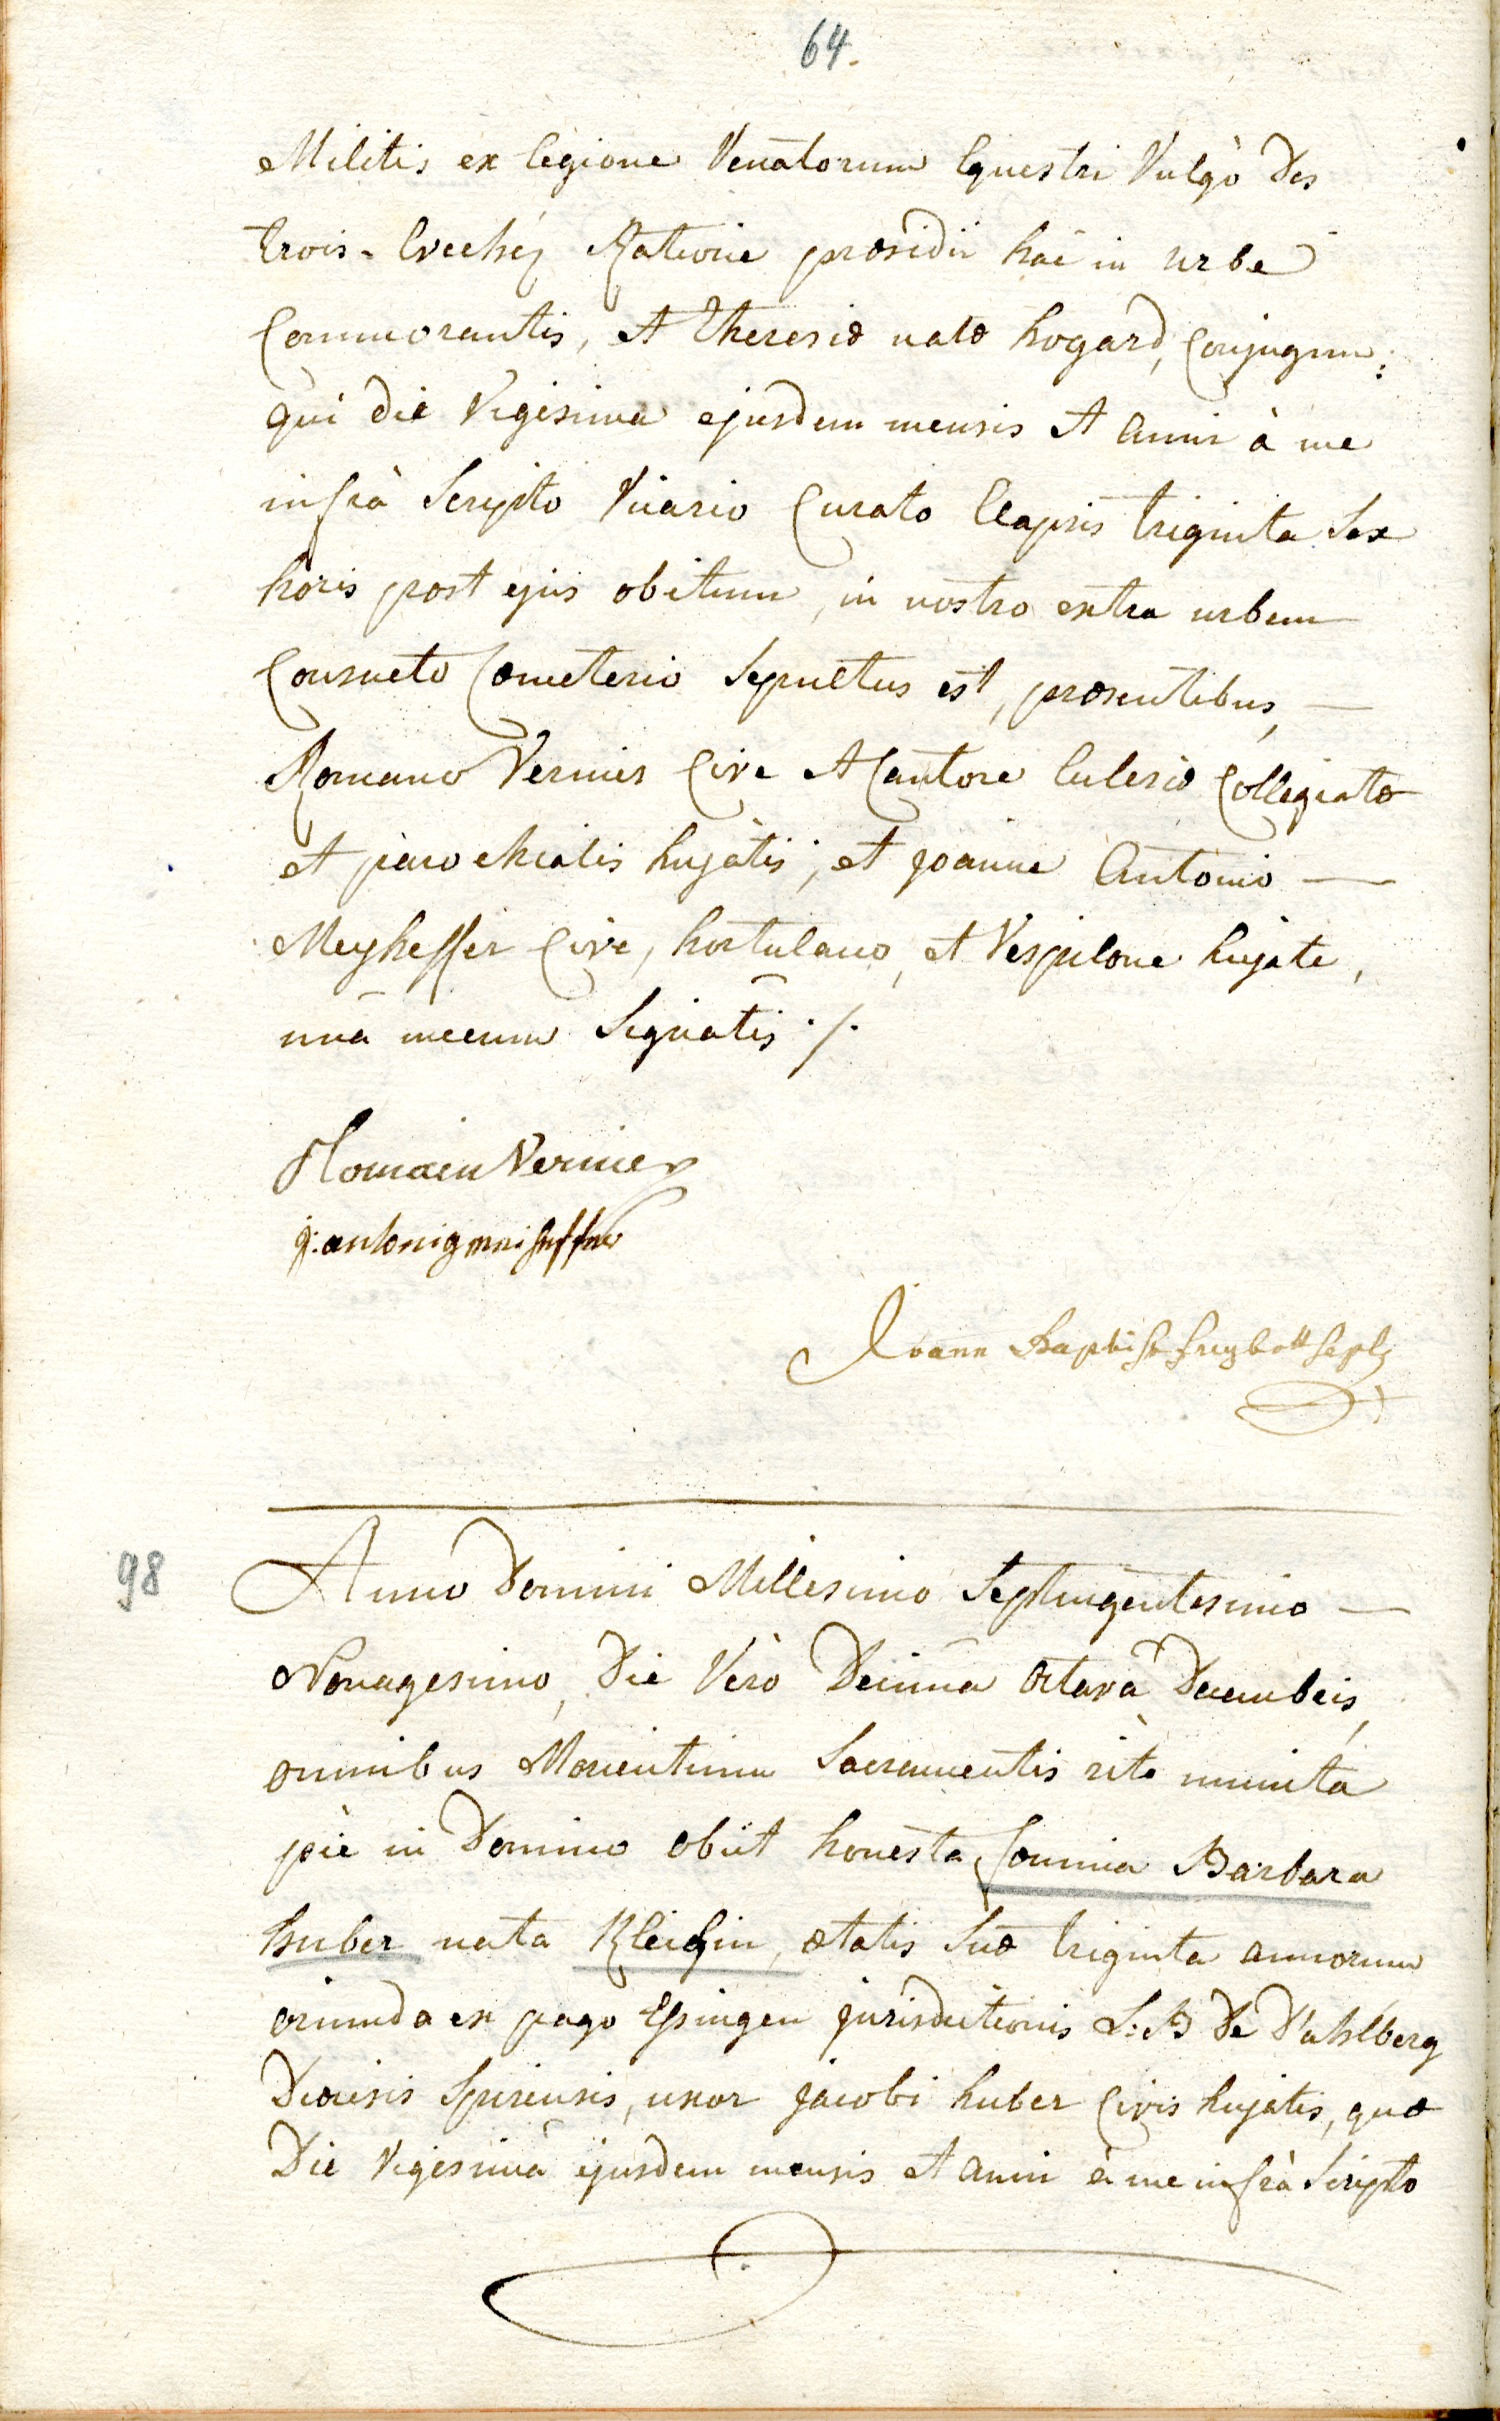 64.
Militis ex legione Venatorum Equestri Vulgò Des
trois-Evechéz Ratione præsidii hac in urbe
Commorantis, et Theresiæ natæ hogard, Conjugum:
qui die Vigesima ejusdem mensis et anni à me
infrà Scripto Vicario Curato Elapsis triginta Sex
horis post ejus obitum, in nostro extra urbem
Consueto Cœmeterio Sepultus est, præsentibus, —
Romano Vernier Cive et Cantore Eclesiæ Collegiatæ
et parochialis hujatis; et joanne Antonio —
Meyheffer Cive, hortulano, et Vespilone hujate,
unà mecum Signatis ./.
Romain Vernier
j: antoni meiheffer
Joann Baptist
98
Anno Domini Millesimo Septuigentesimo —
Nonagesimo, Die Verò Decima Octavâ Decembris,
omnibus Morientium Sacramentis ritè munita
piè in Domino obiit honesta foemina Barbara
huber nata Kleihin, ætatis suæ triginta annorum
oriunda ex pago Essingen jurisdictionis L: B De D'ahlberg
Diœcesis Spirensis, uxor jacobi huber Civis hujatis, quæ
Die Vigesimâ ejusdem mensis et anni à me infrà Scripto